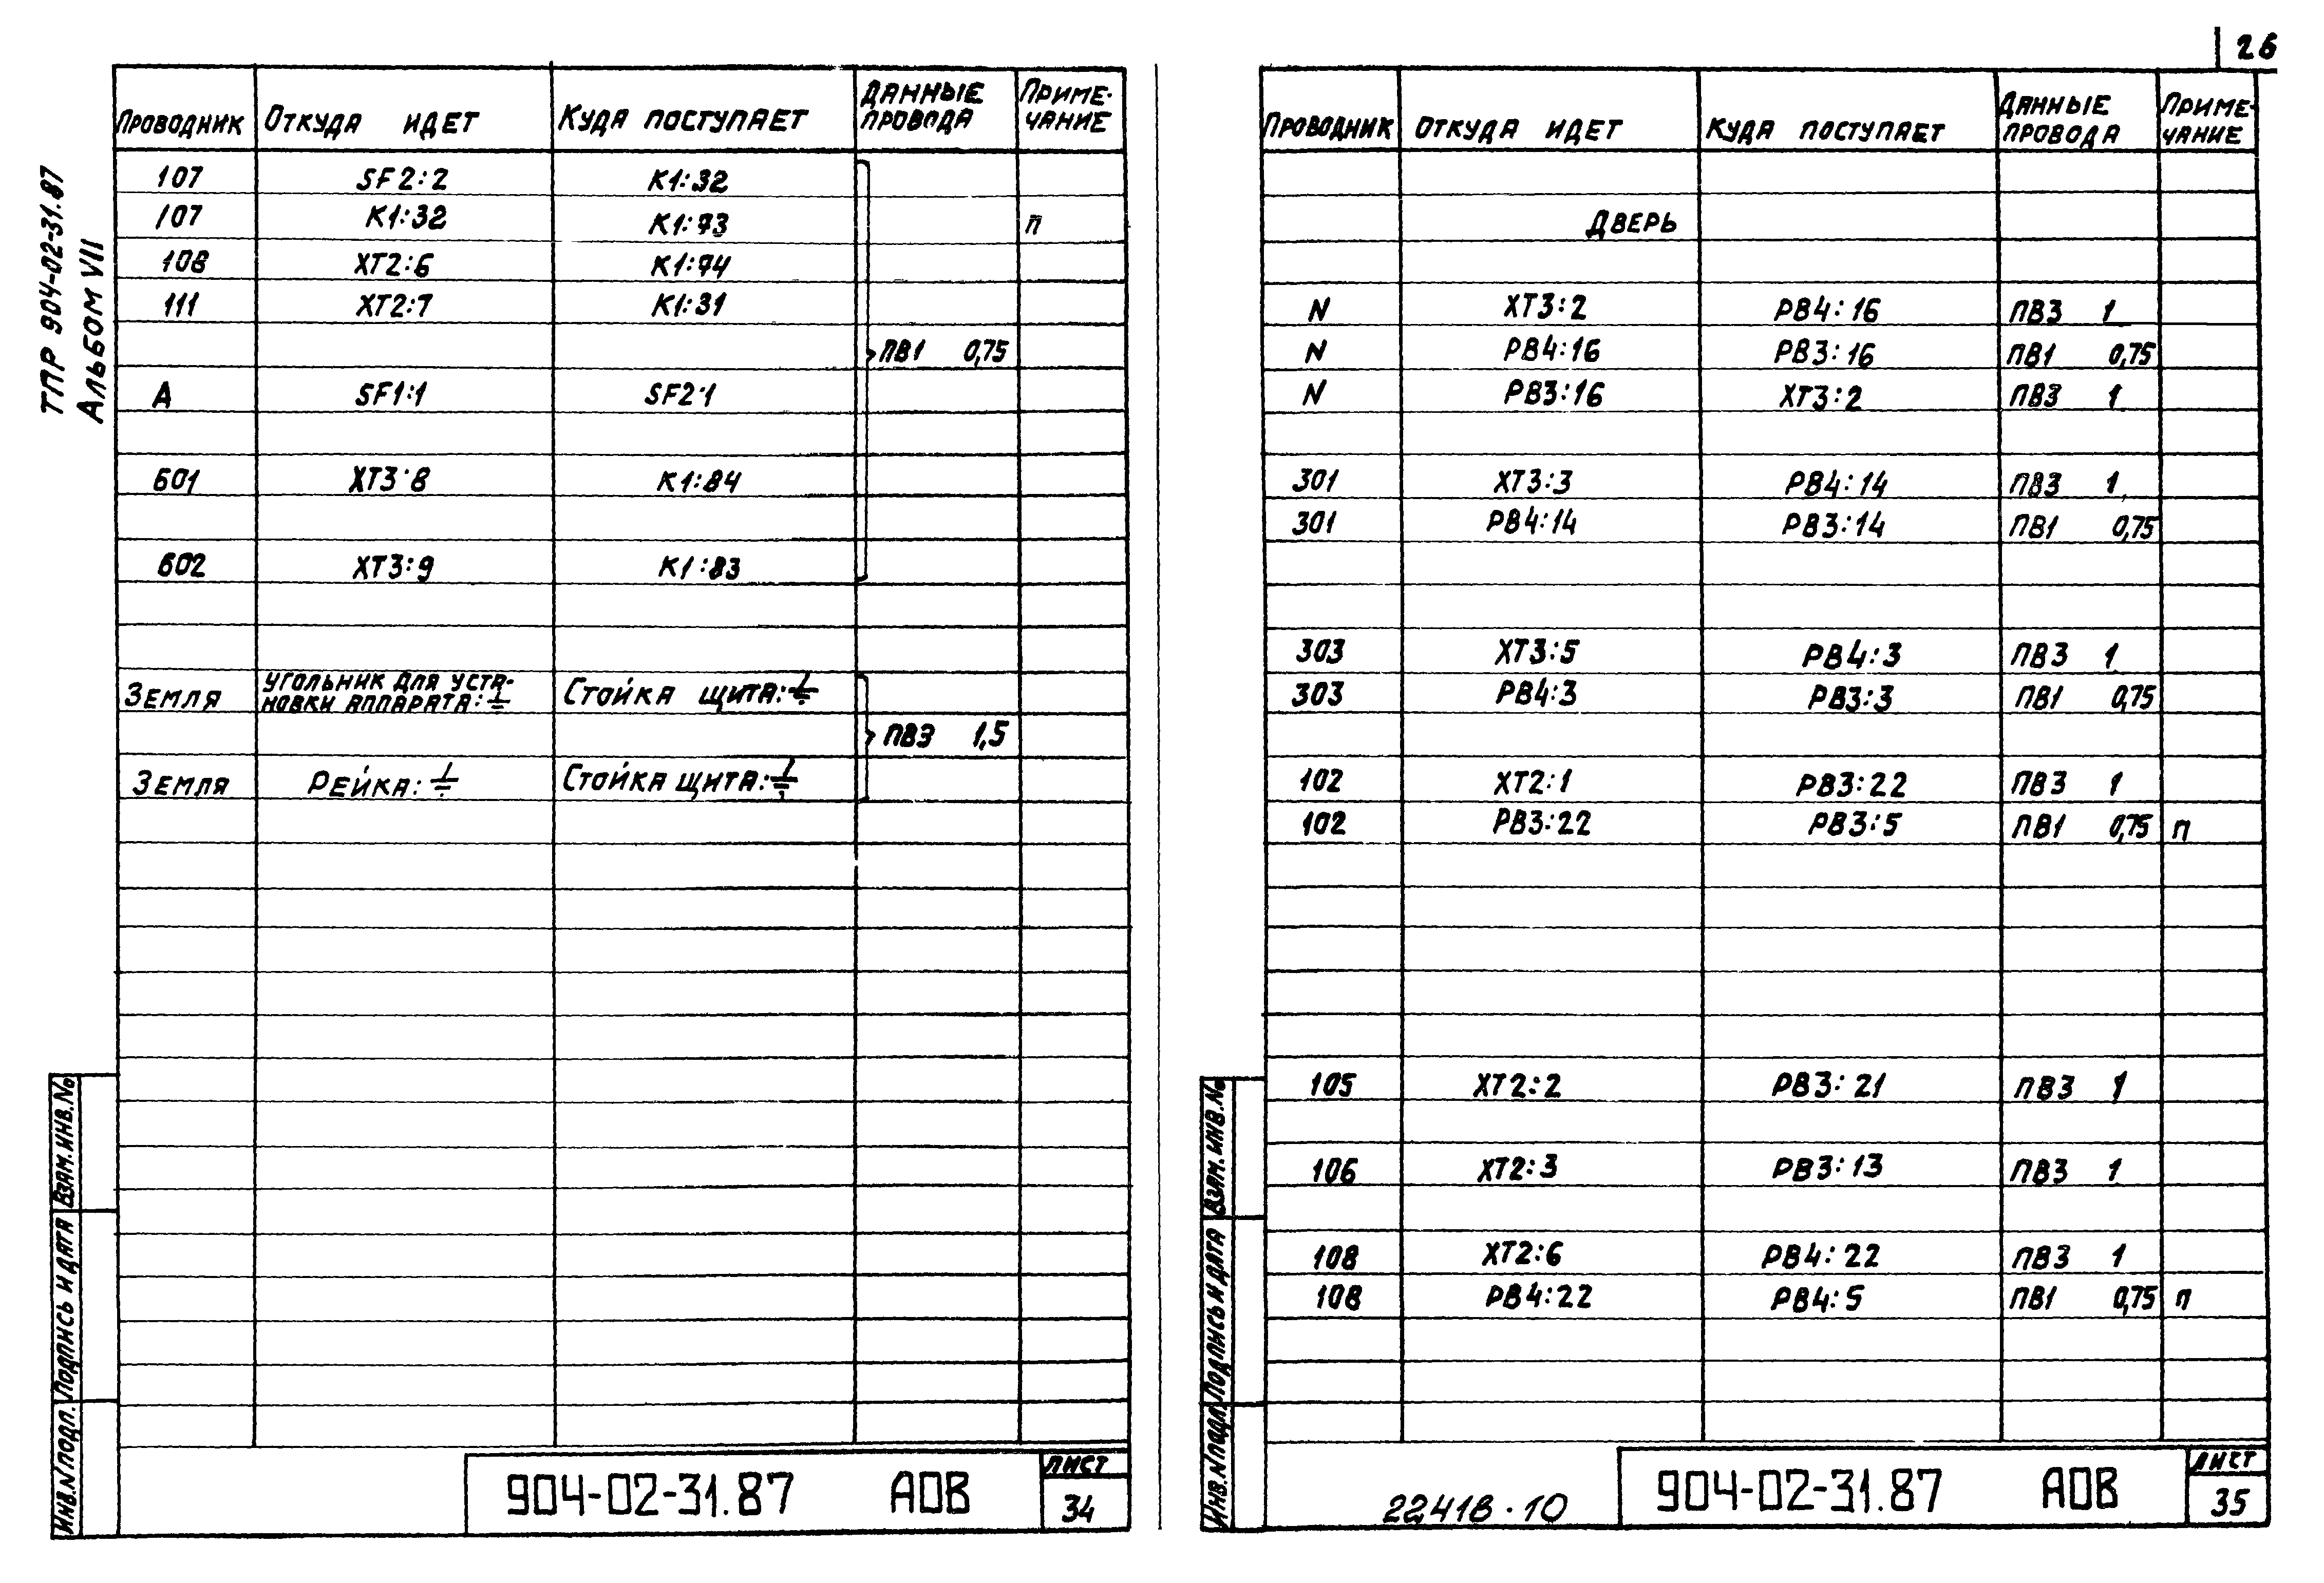 26
ТПР 904-02-31.87
Альбом VII
Проводник Откуда идет Куда поступает Данные провода Приме-чание
107 SF2:2 К1:32
107 К1:32 К1:73 п
108 ХТ2:6 К1:74
111 ХТ2:7 К1:31
ПВ1 0,75
А SF1:1 SF2:1
601 ХТ3:8 К1:84
602 ХТ3:9 К1:83
Земля Угольник для уста-новки аппарата:⏚ Стойка щита:⏚
ПВ3 1,5
Земля Рейка:⏚ Стойка щита:⏚
Инв.№ подл. Подпись и дата Взам.инв.№
904-02-31.87 АОВ
Лист
34
Проводник Откуда идет Куда поступает Данные провода Приме-чание
Дверь
N ХТ3:2 РВ4:16 ПВ3 1
N РВ4:16 РВ3:16 ПВ1 0,75
N РВ3:16 ХТ3:2 ПВ3 1
301 ХТ3:3 РВ4:14 ПВ3 1
301 РВ4:14 РВ3:14 ПВ1 0,75
303 ХТ3:5 РВ4:3 ПВ3 1
303 РВ4:3 РВ3:3 ПВ1 0,75
102 ХТ2:1 РВ3:22 ПВ3 1
102 РВ3:22 РВ3:5 ПВ1 0,75 п
105 ХТ2:2 РВ3:21 ПВ3 1
106 ХТ2:3 РВ3:13 ПВ3 1
108 ХТ2:6 РВ4:22 ПВ3 1
108 РВ4:22 РВ4:5 ПВ1 0,75 п
Инв.№ подл. Подпись и дата Взам.инв.№
22418-10
904-02-31.87 АОВ
Лист
35